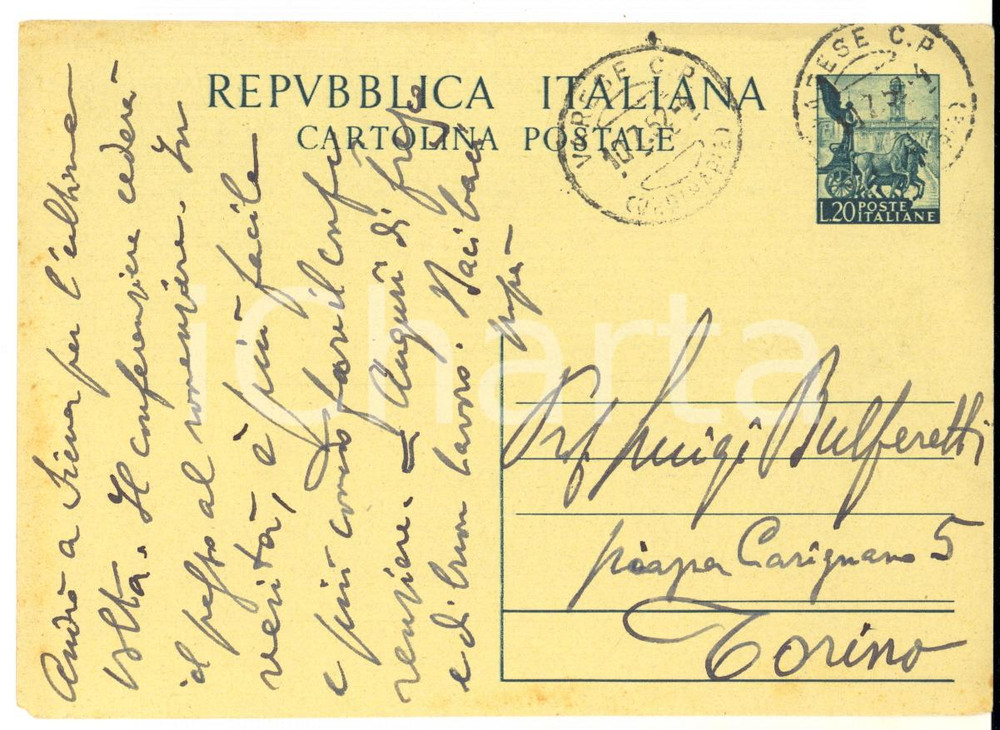 REPVBBLICA ITALIANA
CARTOLINA POSTALE
VARESE C.P.
VARESE C.P.
L.20 POSTE
ITALIANE
iCharta
Andrò a Siena per l'ultima
volta. Il conferenziere cederà
il passo al romanziere. In
verità, è più facile
e più comodo fare il confe
renziere. = Auguri di
e di buon lavoro. Baci
papà
Prof. Luigi Bulferetti
piazza Carignano 5
Torino